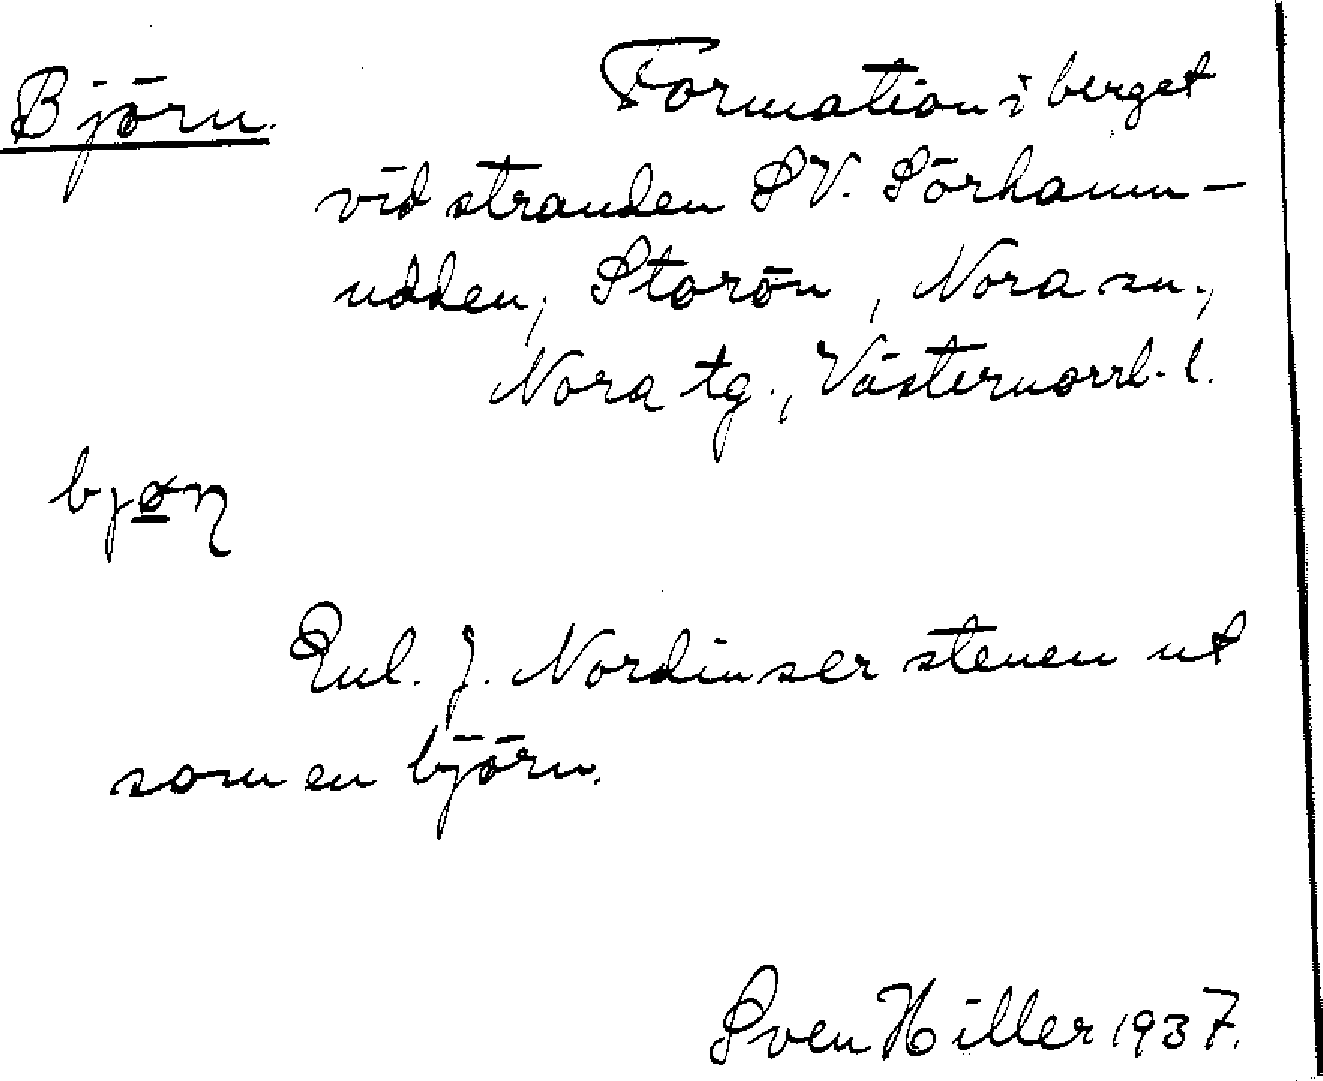 Björn. Formation i berget
vid stranden SV. Sörhamn-
udden, Storön, Nora sn.,
Nora tg., Västernorrl. l.
bjøn
Enl. J. Nordin ser stenen ut
som en björn.
Sven Hiller 1937.